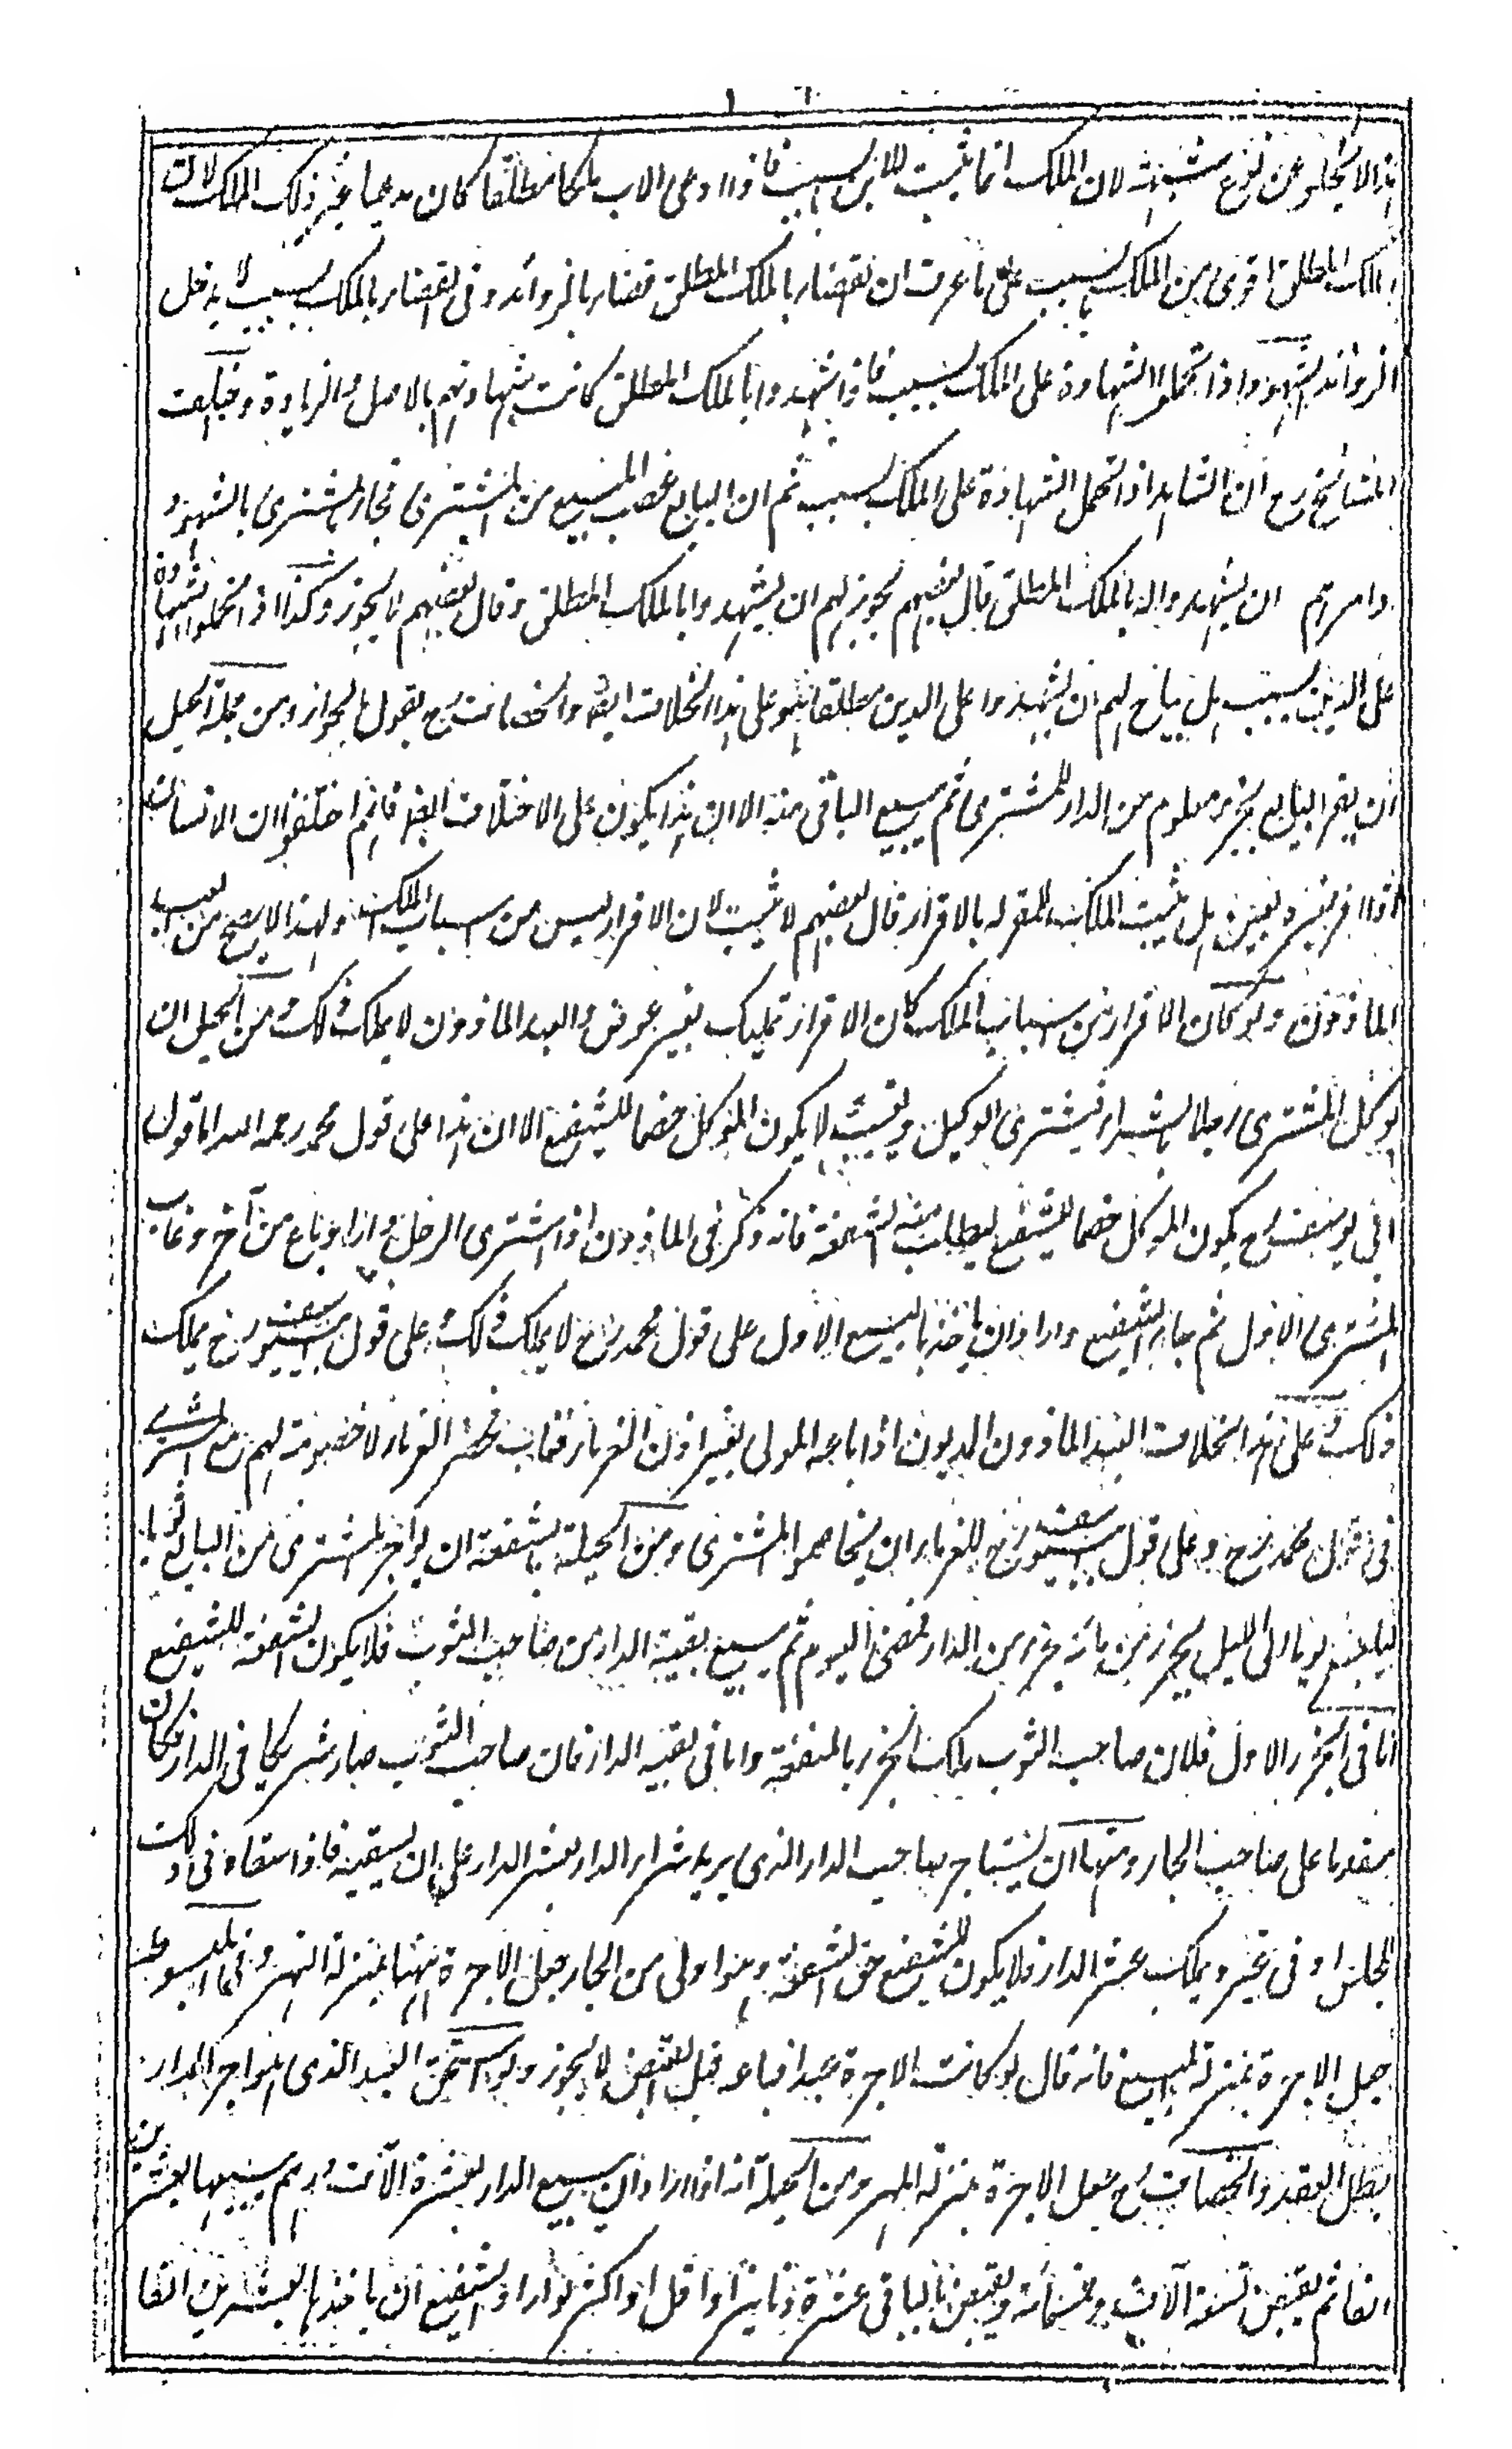 هذا لا يخلو عن نوع شبهة لان الملك انما يثبت للابن بسبب فاذا ادعى الاب ملكا مطلقا كان مدعيا غير ذلك الملك لان
الملك المطلق اقوى من الملك بسبب على ما عرف ان القضاء بالملك المطلق قضاء بالزوائد وفى القضاء بالملك بسبب لا يدخل
الزوائد الشهود اذا تحملوا الشهادة على الملك بسبب فاذا شهدوا بالملك المطلق كانت شهادتهم بالاصل والزيادة وقد اختلفت
المشائخ رح ان الشاهد اذا تحمل الشهادة على الملك بسبب ثم ان البايع غصب المبيع من المشترى فجاء المشترى بالشهود
وامرهم ان يشهدوا له بالملك المطلق قال بعضهم يجوز لهم ان يشهدوا بالملك المطلق وقال بعضهم لا يجوز وكذا اذا تحملوا الشهادة
على الدين بسبب هل يباح لهم ان يشهدوا على الدين مطلقا فهو على هذا الخلاف ايضا والخصاف رح يقول بالجواز ومن جملة الحيل
ان يقر البايع بجزء معلوم من الدار للمشترى ثم يبيع الباقى منه الا ان هذا يكون على الاختلاف ايضا فانهم اختلفوا ان الانسان
اذا اقر لغيره بعين هل يثبت الملك للمقر له بالاقرار قال بعضهم لا يثبت لان الاقرار ليس من اسباب الملك ولهذا لا يصح من العبد
الماذون ولو كان الاقرار من اسباب الملك كان الاقرار تمليك بغير عوض والعبد الماذون لا يملك ذلك ومن الحيل ان
يوكل المشترى رجلا بالشراء فيشترى الوكيل ويغيب لا يكون الموكل خصما للشفيع الا ان هذا على قول محمد رحمه الله اما قول
ابى يوسف رح يكون الموكل خصما للشفيع ليطلب منه الشفعة فانه ذكر فى الماذون اذا اشترى الرجل دارا وباع من آخر وغاب
المشترى الاول ثم جاء الشفيع واراد ان ياخذ بالبيع الاول على قول محمد رح لا يملك ذلك وعلى قول ابى يوسف رح يملك
ذلك وعلى هذا الخلاف العبد الماذون المديون اذا باعه المولى بغير اذن الغرماء فغاب فحضر الغرماء لا خصومة لهم مع المشترى
فى قول محمد رح وعلى قول ابى يوسف رح للغرماء ان يخاصموا المشترى ومن الحيلة بالشفعة ان يواجر المشترى من البايع ثوبا
ليلبسه يوما الى الليل بجزء من مائة جزء من الدار فمضى اليوم ثم يبيع بقية الدار من صاحب الثوب فلا يكون الشفعة للشفيع
اما فى الجزء الاول فلان صاحب الثوب ملك الجزء بالمنفعة واما فى بقية الدار فان صاحب الثوب صار شريكا فى الدار فكان
مقدما على صاحب الجار ومنها ان يستاجر صاحب الدار الذى يريد شراء الدار بعشر الدار على ان يسقيه فاذا سقاه فى ذلك
المجلس او فى غيره يملك عشر الدار فلا يكون للشفيع حق الشفعة وهو اولى من الجار جعل الاجرة ههنا بمنزلة المهر وفى المبسوط
جعل الاجرة بمنزلة المبيع فانه قال لو كانت الاجرة عبدا فباعه قبل القبض لا يجوز ولو استحق العبد الذى هو اجر الدار
يبطل العقد والخصاف رح جعل الاجرة بمنزلة المهر ومن الحيلة انه اذا اراد ان يبيع الدار بعشرة الآف درهم يبيعها بعشرين
الفا ثم يقبض تسعة الآف وخمسمائة ويقبض بالباقى عشرة دنانير او اقل او اكثر لو اراد الشفيع ان ياخذها بعشرين الفا